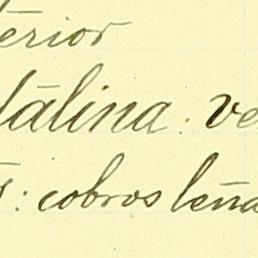 terior
talina. ve
s: cobros leña